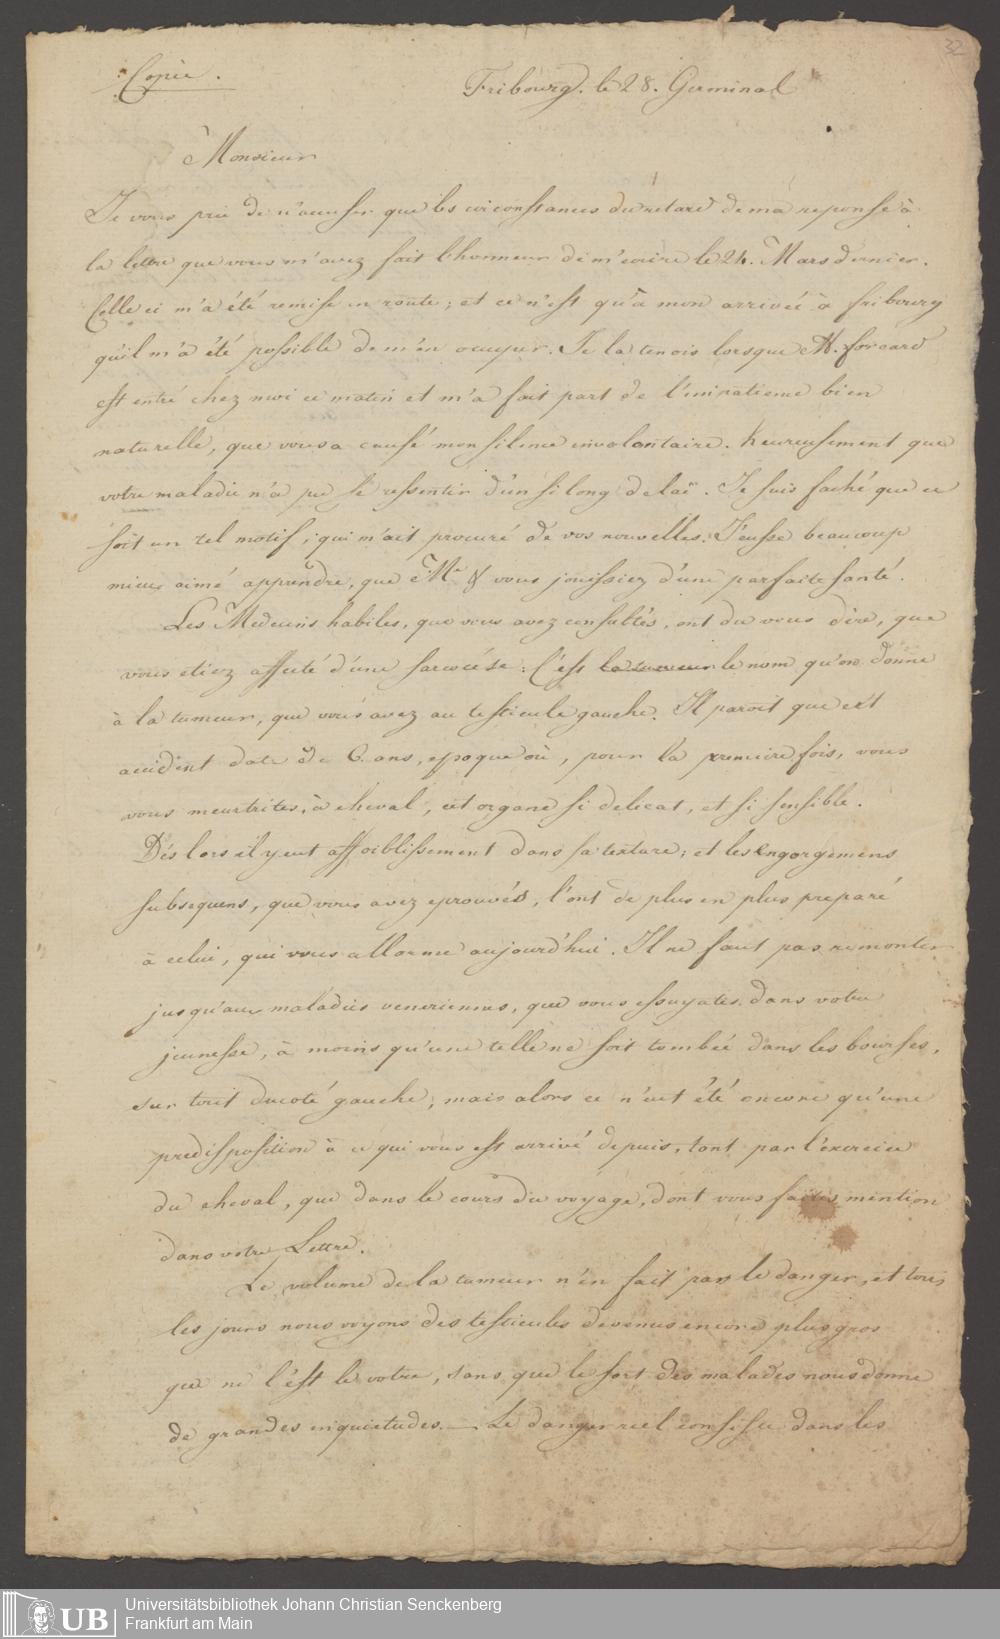 32
Copie.
Fribourg. le 28. Germinal
Monsieur
Je vous prie de n'accuser que les circonstances du retard de ma reponse à
la lettre que vous m'avez fait l'honneur de m'ecrire le 24. Mars dernier.
Celle ci m'a été remise en route; et ce n'est qu'à mon arrivée à fribourg
qu'il m'a été possible de m'en occuper. Je la tenois lorsque M. forcard
est entré chez moi ce matin et m'a fait part de l'impatience bien
naturelle, que vous a causé mon silence involontaire. heureusement que
votre maladie n'a pu se ressentir d'un si long delai. Je suis faché que ce
soit un tel motif, qui m'ait procuré de vos nouvelles. J'eusse beaucoup
mieux aimé apprendre, que Me & vous jouissiez d'une parfaite santé.
Les Medecins habiles, que vous avez consultés, ont du vous dire, que
vous etiez affecté d'une sarcocése: C'est la tumeur le nom qu'on donne
à la tumeur, que vous avez au testicule gauche. Il paroit que cet
accident date de 6. ans, epoque où, pour la premiere fois, vous
vous meurtrites, à cheval, cet organe si delicat, et si sensible.
Dès lors il y eut affoiblissement dans sa texture; et les Engorgemens
subsequens, que vous avez eprouvés, l'ont de plus en plus preparé
à celui, qui vous allarme aujourd'hui. Il ne faut pas remonter
jusqu'aux maladies veneriennes, que vous essuyates dans votre
jeunesse, à moins qu'une telle ne soit tombée dans les bourses,
sur tout du coté gauche; mais alors ce n'eut été encore qu'une
predisposition à ce qui vous est arrivé depuis, tant par l'exercice
du cheval, que dans le cours du voyage, dont vous faites mention
dans votre Lettre.
Le volume de la tumeur n'en fait pas le danger, et tous
les jours nous voyons des testicules devenus encore plus gros
que ne l'est le votre, sans que le sort des malades nous donne
de grandes inquietudes. — Le danger réel consiste dans les
UB Universitätsbibliothek Johann Christian Senckenberg
Frankfurt am Main